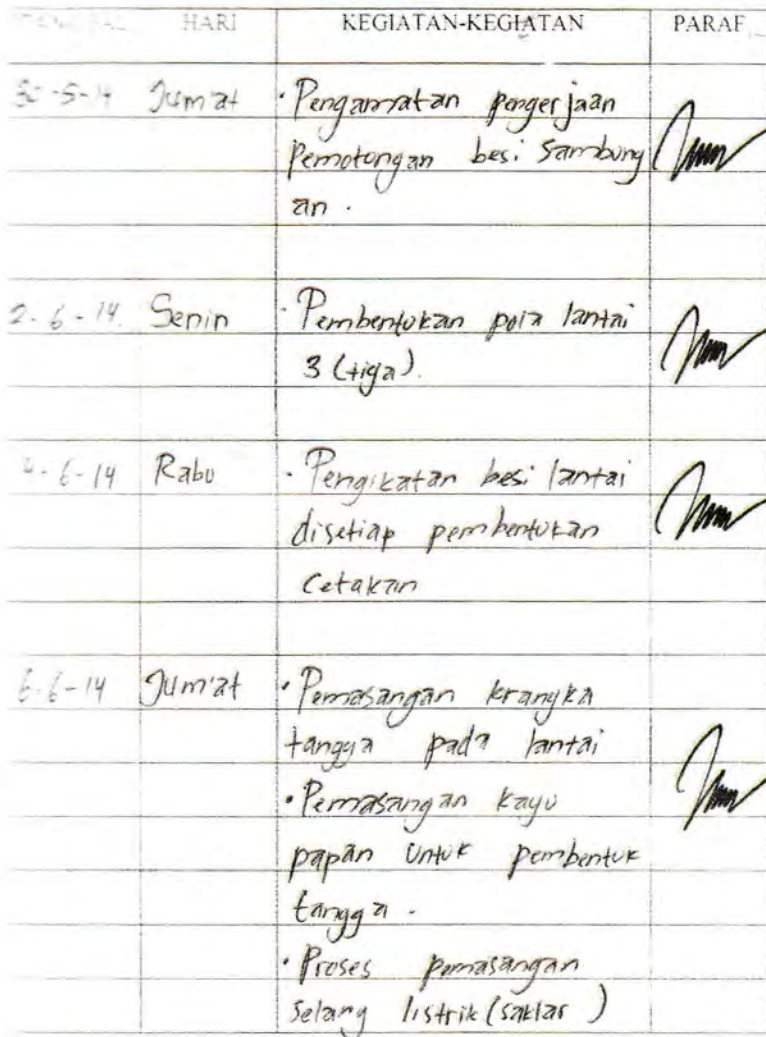 TANGGAL HARI KEGIATAN-KEGIATAN PARAF
30-5-14 Jum'at · Pengamatan pengerjaan
pemotongan besi sambung
an.
2-6-14. Senin · Pembentukan pola lantai
3 (tiga).
4-6-14 Rabu · Pengikatan besi lantai
disetiap pembentukan
Cetakan
6-6-14 Jum'at · Pemasangan krangka
tangga pada lantai
· Pemasangan kayu
papan untuk pembentuk
tangga.
· Proses pemasangan
selang listrik (saklar)